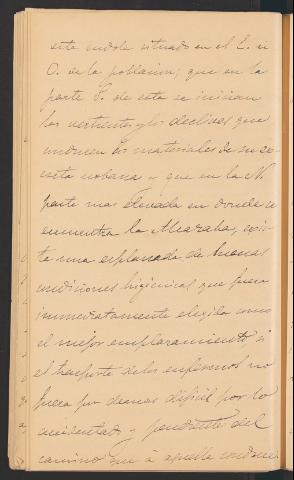 esta indole situado en el E. ni
O. de la poblacion; que en la
parte S. de esta se inician
las vertientes y los declives que
conducen los materiales de su
urbana y que en la N.
parte mas elevada en donde se
encuentra la Alcazaba, exis-
te una esplanada de buenas
condiciones higienicas que fuera
inmediatamente elegida como
el mejor emplazamiento, si
el trasporte de los enfermos no
fuera por demas dificil por lo
accidentado y pendiente del
camino que á aquella conduce